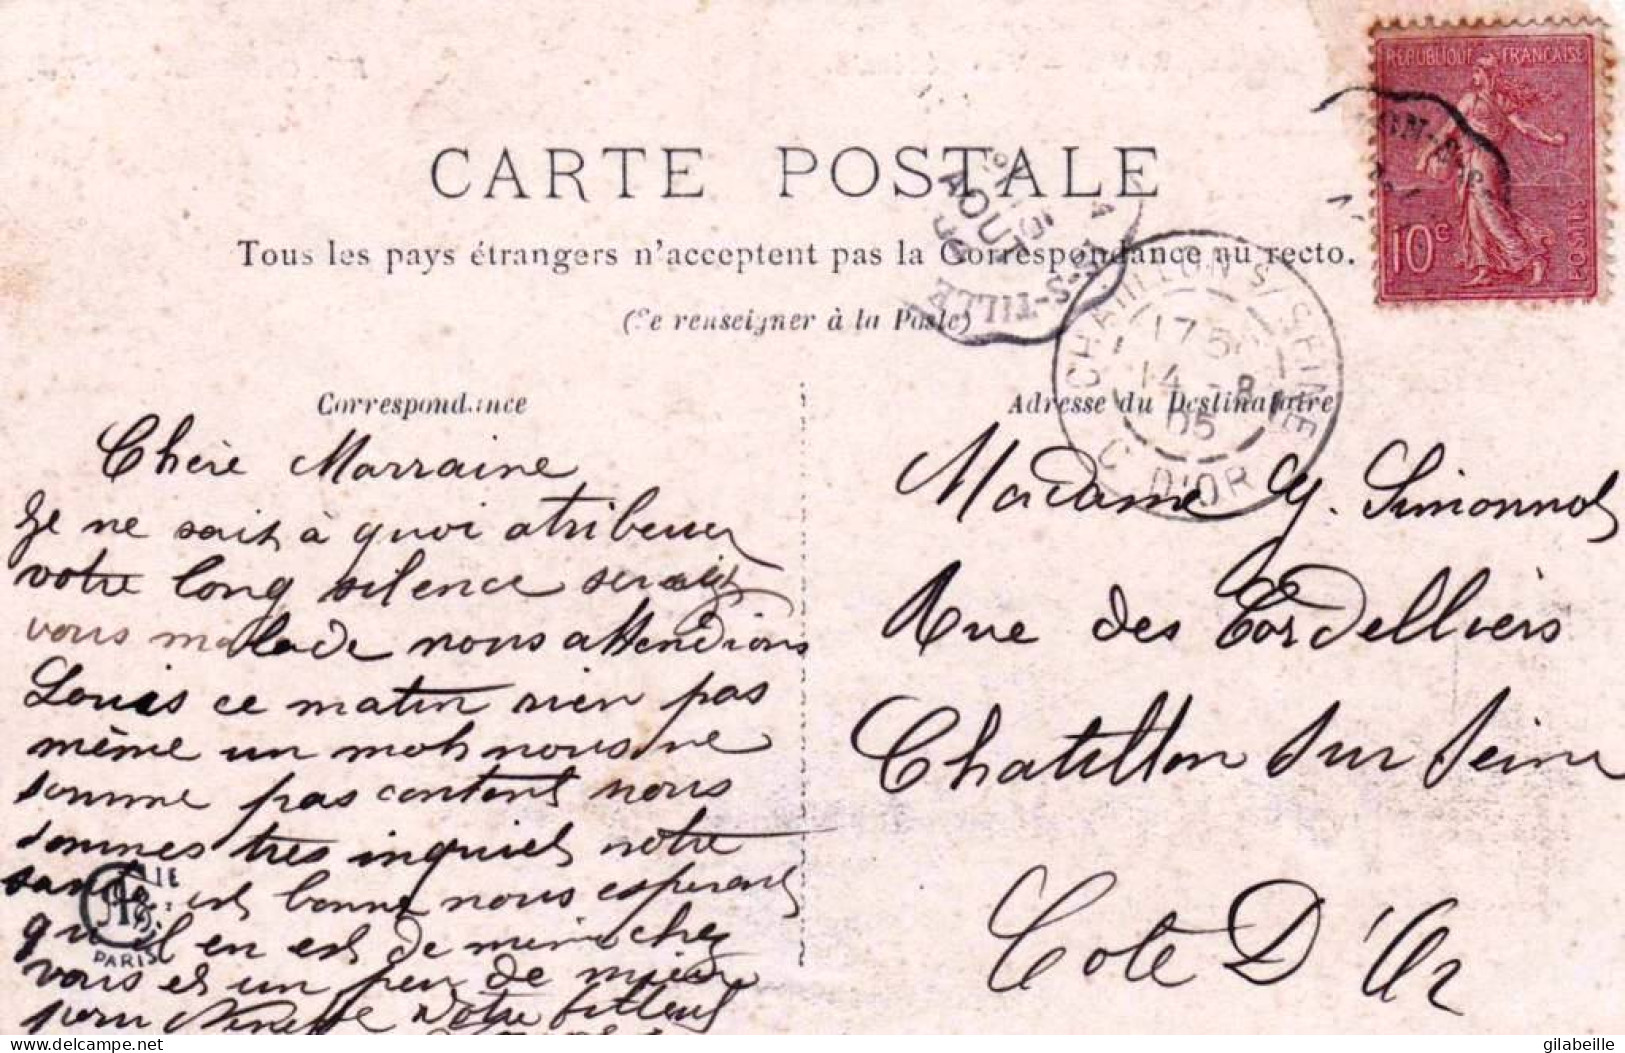 CARTE POSTALE
Tous les pays étrangers n'acceptent pas la Correspondance au recto.
(Se renseigner à la Poste)
REPUBLIQUE FRANÇAISE
10c
POSTES
AOUT
05
S-TILLE
CHATILLON S/ SEINE
17 5
14 - 8
05
C. D'OR
Correspondance
Chère Marraine
Je ne sait à quoi atribeuer
votre long silence serait
vous malade nous attendions
Louis ce matin rien pas
même un mot nous ne
somme pas content nous
sommes tres inquiet notre
santé est bonne nous esperont
qu'il en est de mime chez
vous et un peu de mieux
pour Ninette Votre filleul
PARIS
Adresse du Destinataire
Madame Simonnot
Rue des Cordelliers
Chatillon sur Seine
Cote D'Or
delcampe.net
gilabeille